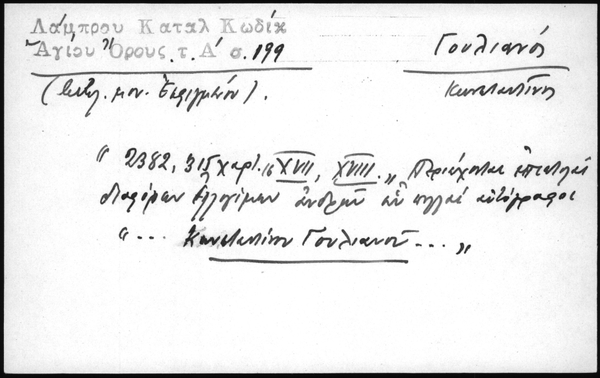 Λάμπρου Καταλ Κωδίκ
Ἁγίου Ὄρους τ. Α΄ σ. 199
Γουλιανός
(βιβλ. μον. Ἐσφιγμένου).
Κωνσταντῖνος
" 2382, 315 χαρτ. 16 XVII, XVIII. „ Περιέχονται ἐπιστολαὶ
διαφόρων ἐλλογίμων ἀνδρῶν ὧν πολλαὶ αὐτόγραφοι
" ... Κωνσταντίνου Γουλιανοῦ ... „